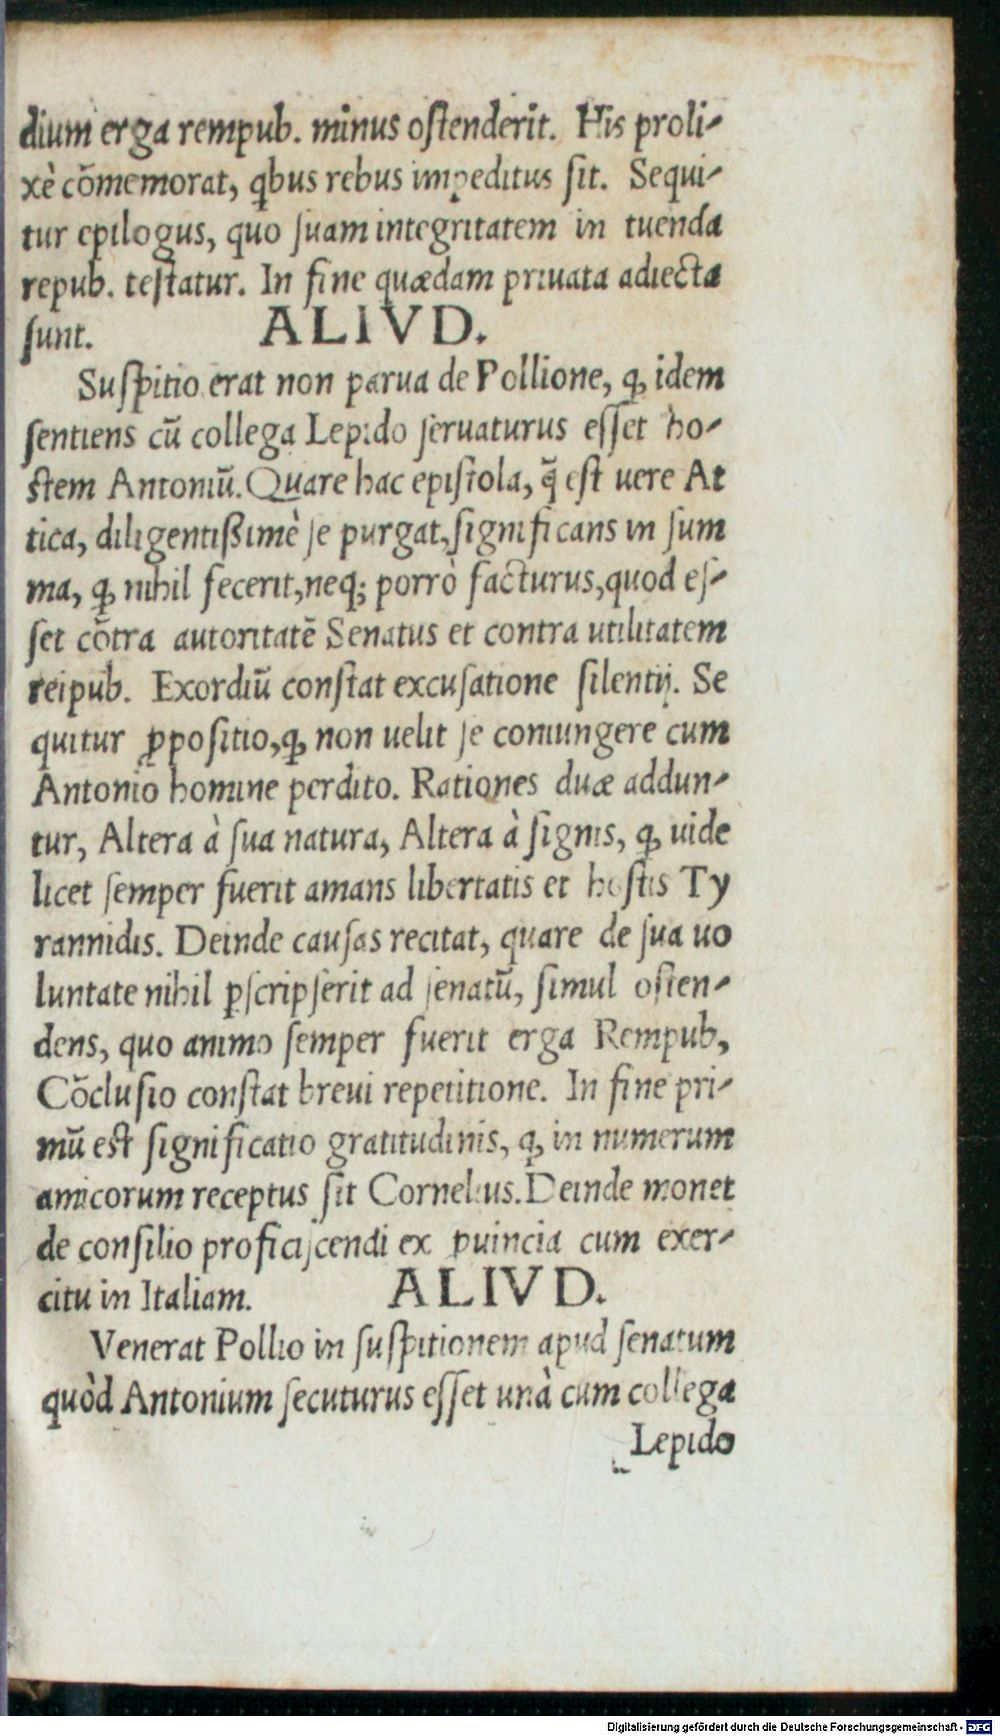 dium erga rempub. minus ostenderit. His proli-
xè cõmemorat, qbus rebus impeditus sit. Sequi-
tur epilogus, quo suam integritatem in tuenda
repub. testatur. In fine quædam priuata adiecta
sunt. ALIVD.
Suspitio erat non parua de Pollione, ꝙ idem
sentiens cũ collega Lepido seruaturus esset ho-
stem Antoniũ. Quare hac epistola, q̃ est uere At
tica, diligentißimè se purgat, significans in sum
ma, ꝙ nihil fecerit, neq; porrò facturus, quod es-
set cõtra autoritatẽ Senatus et contra utilitatem
reipub. Exordiũ constat excusatione silentij. Se
quitur ꝓpositio, ꝙ non uelit se coniungere cum
Antonio homine perdito. Rationes duæ addun-
tur, Altera à sua natura, Altera à signis, ꝙ uide
licet semper fuerit amans libertatis et hostis Ty
rannidis. Deinde causas recitat, quare de sua uo
luntate nihil ꝑscripserit ad senatũ, simul osten-
dens, quo animo semper fuerit erga Rempub,
Cõclusio constat breui repetitione. In fine pri-
mũ est significatio gratitudinis, ꝙ in numerum
amicorum receptus sit Cornelius. Deinde monet
de consilio proficiscendi ex ꝓuincia cum exer-
citu in Italiam. ALIVD.
Venerat Pollio in suspitionem apud senatum
quòd Antonium secuturus esset unà cum collega
Lepido
Digitalisierung gefördert durch die Deutsche Forschungsgemeinschaft - DFG